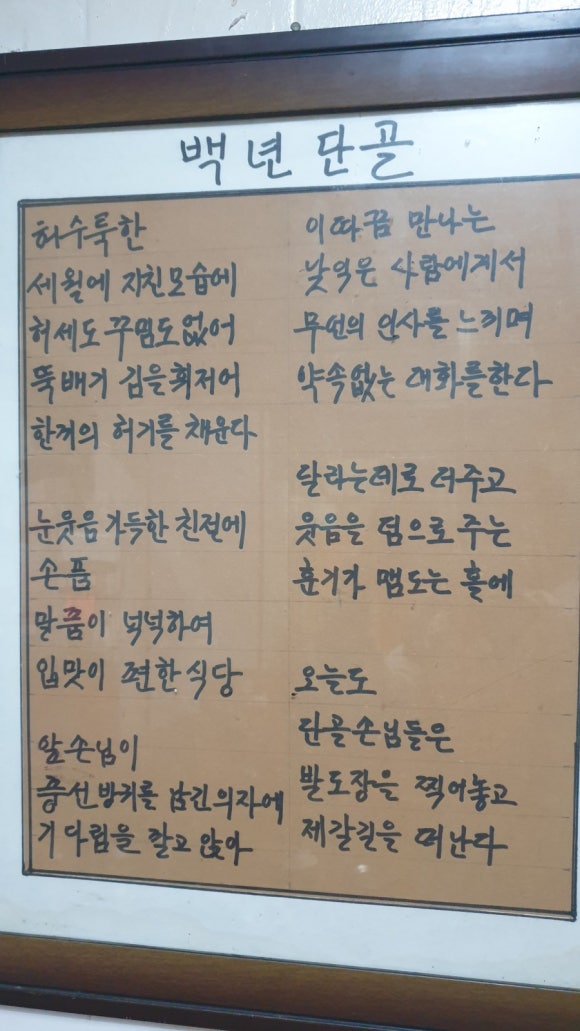 백년단골
허수룩한
세월에 지친모습에
허세도 꾸밈도 없어
뚝배기 김을 휘저어
한끼의 허기를 채운다
눈웃음 가득한 친절에
손품
말품이 넉넉하여
입맛이 편한 식당
앞손님이
풍선방귀를 남긴의자에
기다림을 깔고 앉아
이따끔 만나는
낯익은 사람에게서
무언의 인사를 느끼며
약속없는 대화를한다
달라는데로 더주고
웃음을 덤으로 주는
훈기가 맴도는 홀에
오늘도
단골손님들은
발도장을 찍어놓고
제갈길을 떠난다